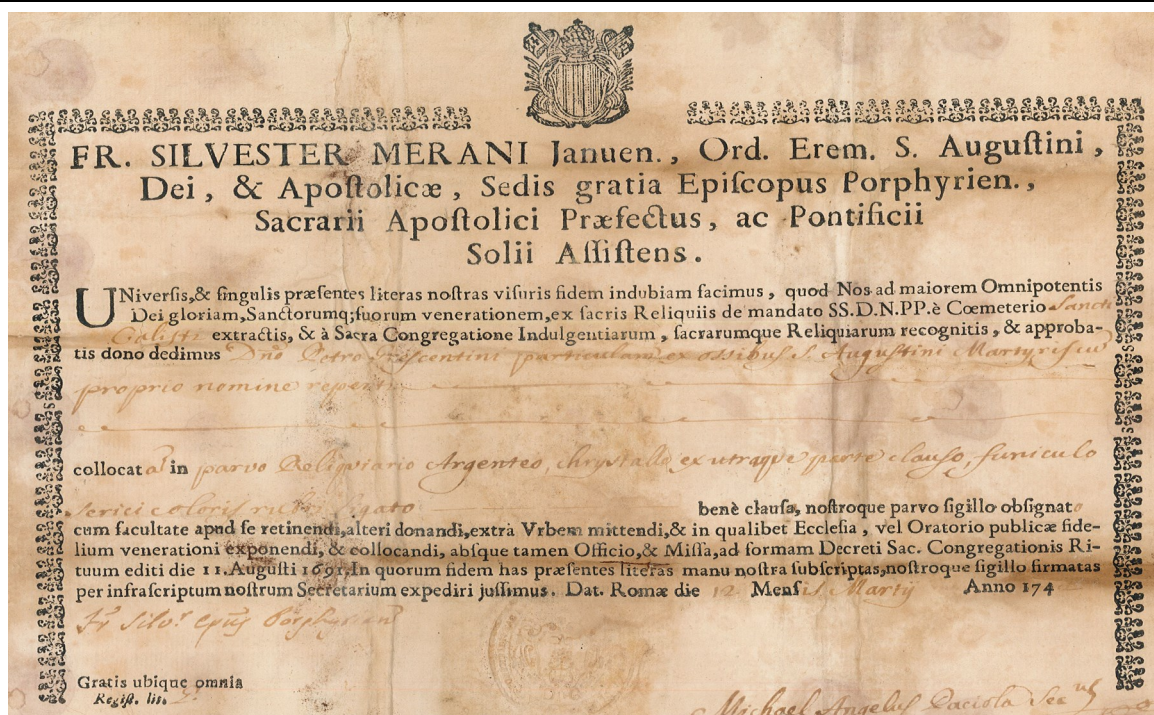 FR. SILVESTER MERANI Januen., Ord. Erem. S. Auguſtini,
Dei, & Apoſtolicæ, Sedis gratia Epiſcopus Porphyrien.,
Sacrarii Apoſtolici Præfectus, ac Pontificii
Solii Aſſiſtens.
UNiverſis,& ſingulis præſentes literas noſtras viſuris fidem indubiam facimus, quod Nos ad maiorem Omnipotentis
Dei gloriam,Sanctorumq;ſuorum venerationem,ex ſacris Reliquiis de mandato SS.D.N.PP.è Cœmeterio Sancti
Calisti extractis, & à Sacra Congregatione Indulgentiarum, ſacrarumque Reliquiarum recognitis, & approba-
tis dono dedimus Dño Petro particulam ex ossibus S. Augustini Martyris cū
proprio nomine reperti
collocat as in parvo Reliquiario Argenteo, chrystallo ex utraque parte clauso, funiculo
serici coloris rubri ligato benè clauſa, noſtroque parvo ſigillo obſignato
cum facultate apud ſe retinendi,alteri donandi,extrà Vrbem mittendi,& in qualibet Eccleſia, vel Oratorio publicæ fide-
lium venerationi exponendi, & collocandi, abſque tamen Officio,& Miſſa,ad formam Decreti Sac. Congregationis Ri-
tuum editi die 11. Auguſti 1691.In quorum fidem has præſentes literas manu noſtra ſubſcriptas,noſtroque ſigillo firmatas
per infraſcriptum noſtrum Secretarium expediri juſſimus. Dat. Romæ die 12 Menſis Martij Anno 174
Fr Silvr Epus Porphyrien
Gratis ubique omnia
Regiſt. lit.
Michael Angelus Paciola Secus